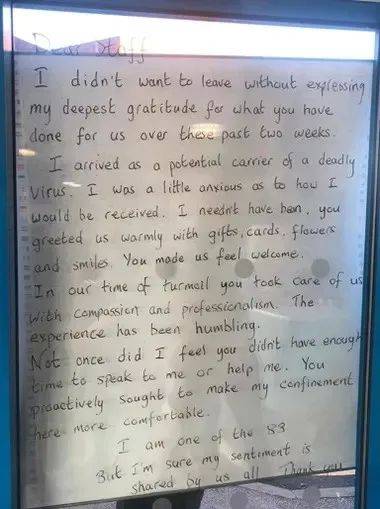 Dear Staff
I didn't want to leave without expressing
my deepest gratitude for what you have
done for us over these past two weeks.
I arrived as a potential carrier of a deadly
virus. I was a little anxious as to how I
would be received. I needn't have been, you
greeted us warmly with gifts, cards, flowers
and smiles. You made us feel welcome.
In our time of turmoil you took care of us
with compassion and professionalism. The
experience has been humbling.
Not once did I feel you didn't have enough
time to speak to me or help me. You
proactively sought to make my confinement
here more comfortable.
I am one of the 83
But I'm sure my sentiment is
shared by us all Thank you